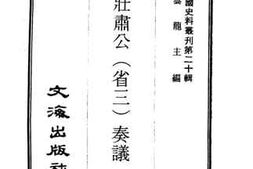 國史料叢刊第二十輯
龍主編
壯肅公（省三）奏議
文海出版社